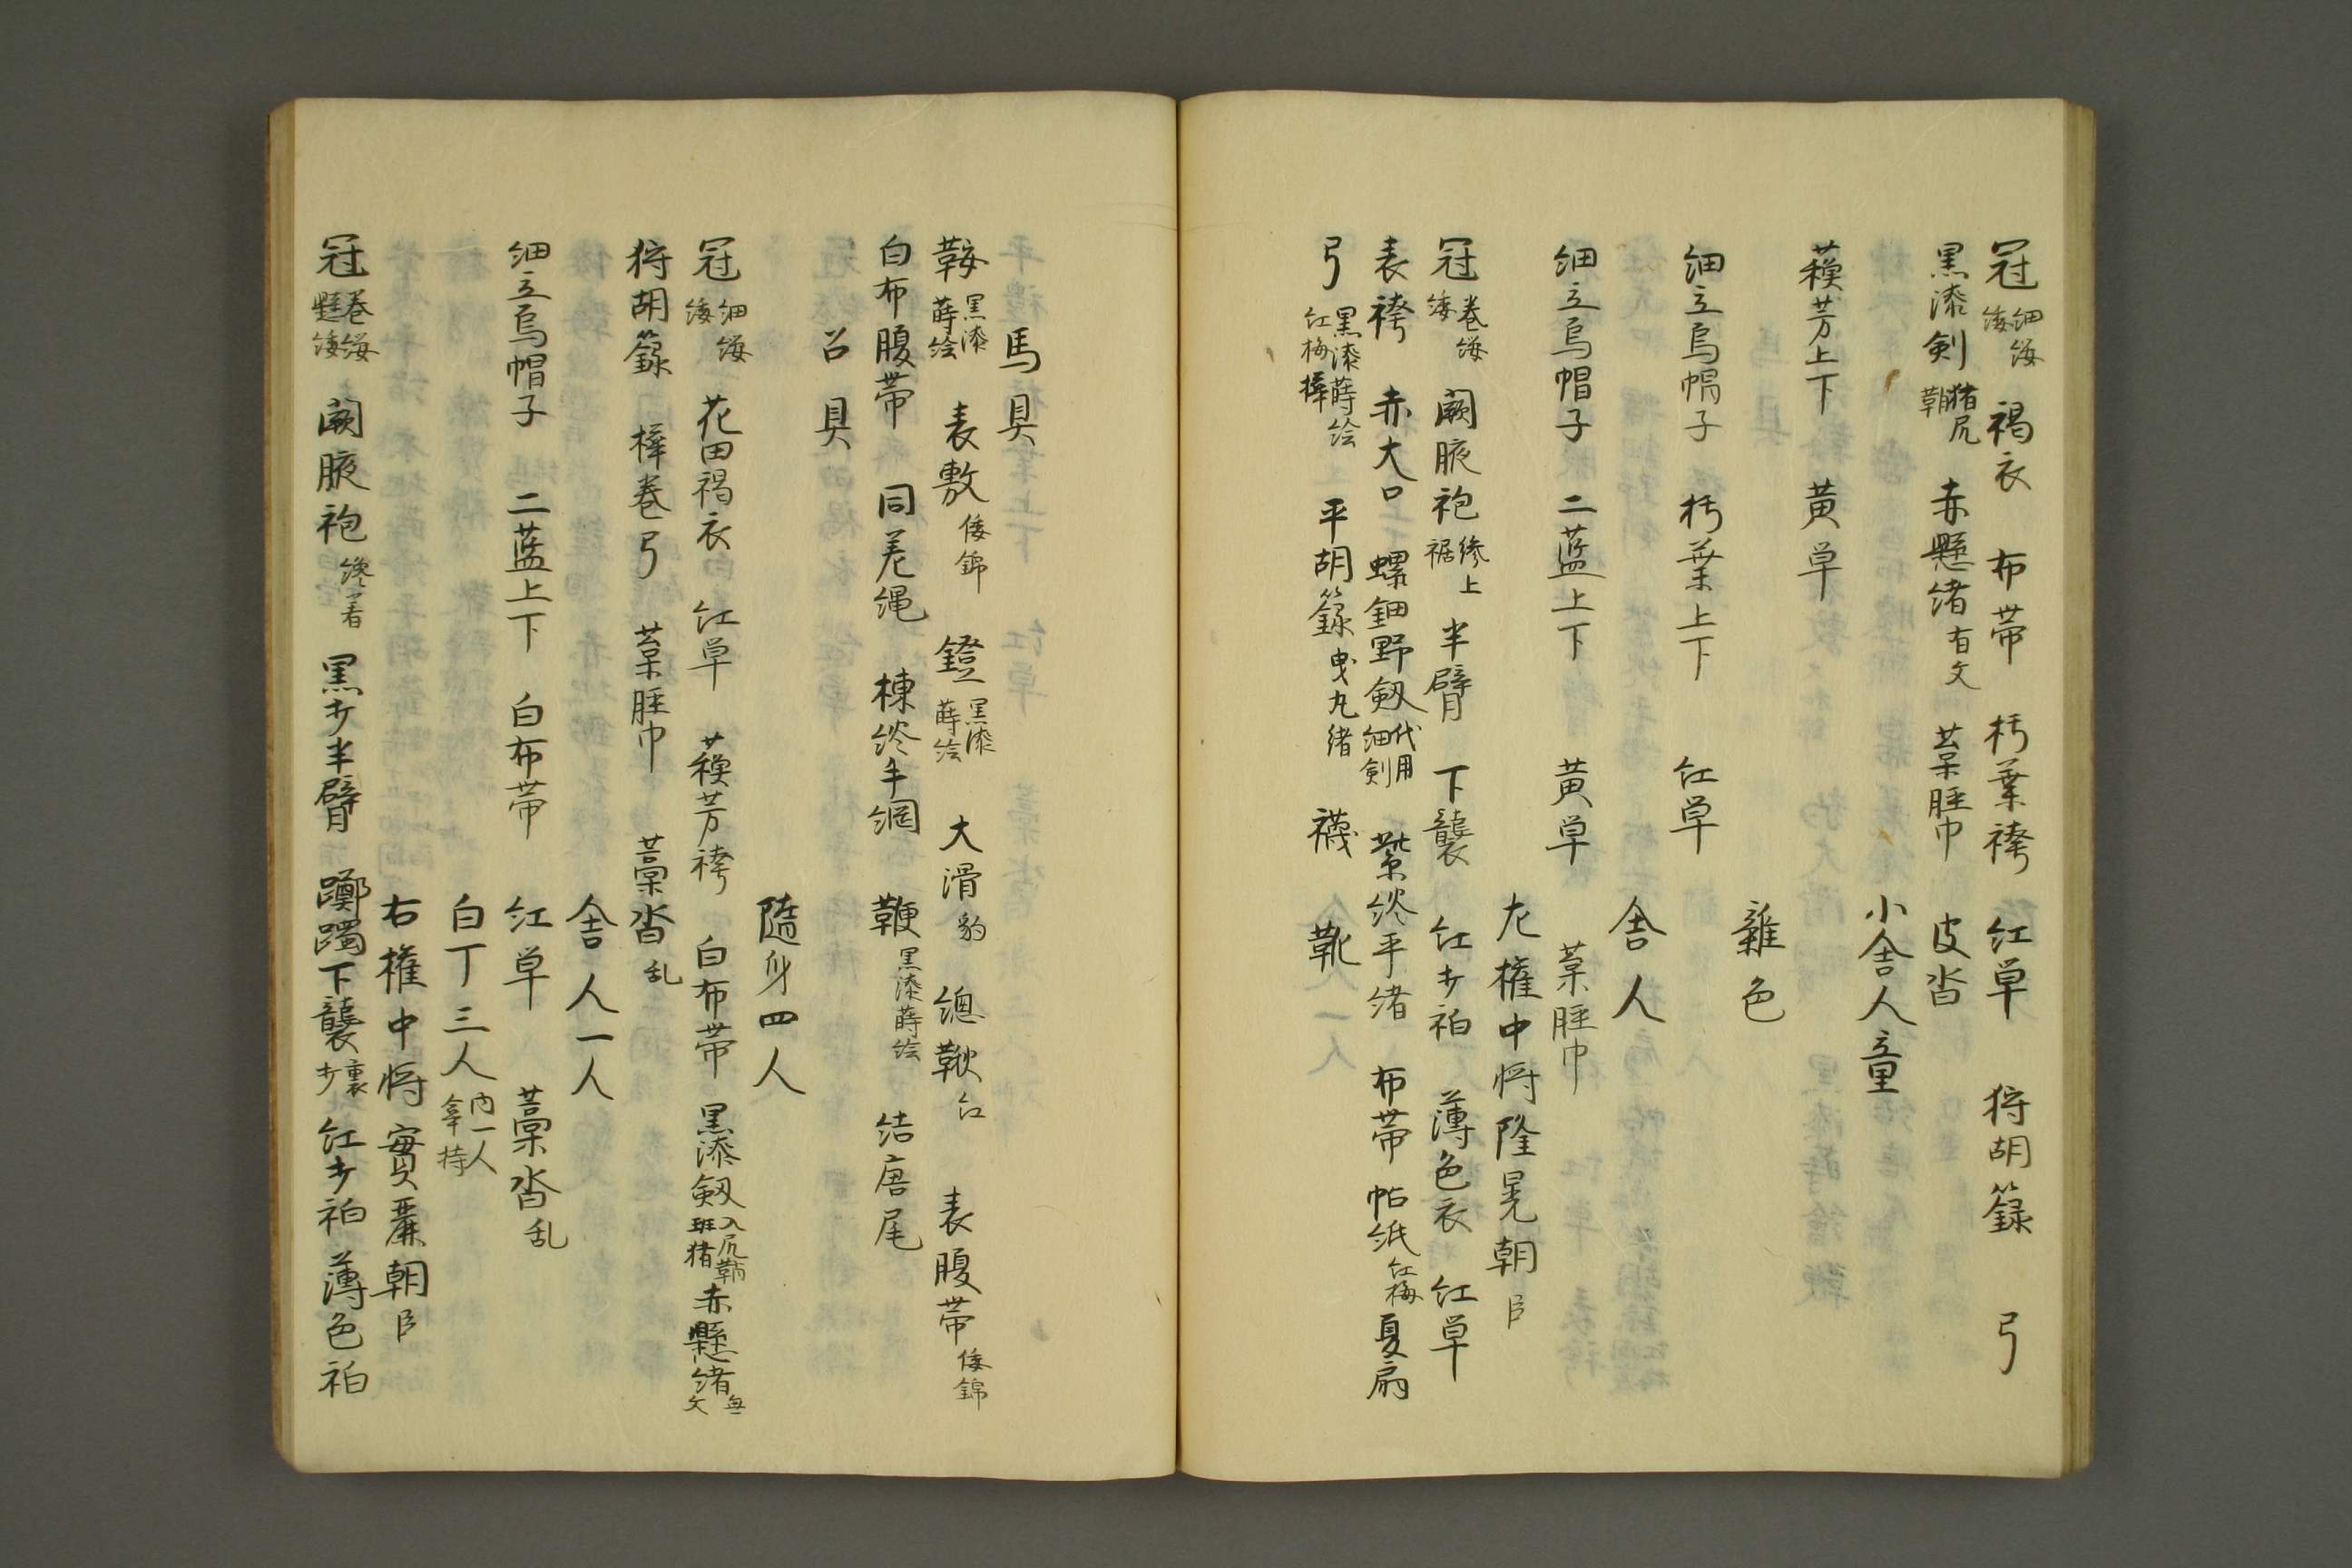 冠 細纓 緌 褐衣 布帯 朽葉袴 紅単 狩胡籙 弓
黒漆剣 猪尻鞘 赤懸緒 有文 葉脛巾 皮沓
小舎人童
蘇芳上下 黄単
雜色
細立烏帽子 朽葉上下 紅単
舎人
細立烏帽子 二藍上下 黄単 葉脛巾
左権中将隆晃朝臣
冠 巻纓 緌 闕腋袍 縿上裾 半臂 下襲 紅打衵 薄色衣 紅単
表袴 赤大口 螺鈿野剱 代用細剣 紫緂平緒 布帯 帖紙 紅梅 夏扇
弓 黒漆蒔絵 紅梅樺 平胡籙 曳丸緒 襪 靴
馬具
鞍 黒漆蒔絵 表敷 倭錦 鐙 黒漆蒔絵 大滑 豹 總鞦 紅 表腹帯 倭錦
白布腹帯 同差縄 楝緂手綱 鞭 黒漆蒔絵 結唐尾
召具
隨身四人
冠 細纓 緌 花田褐衣 紅単 蘇芳袴 白布帯 黒漆剱 入尻鞘 斑猪 赤懸緒 無文
狩胡籙 樺巻弓 葉脛巾 藁沓 乱
舎人一人
細立烏帽子 二藍上下 白布帯 紅単 藁沓 乱
白丁三人 内一人 傘持
右権中将實麗朝臣
冠 巻纓 懸緌 闕腋袍 縿著 黒打半臂 躑躅下襲 裏打 紅打衵 薄色衵